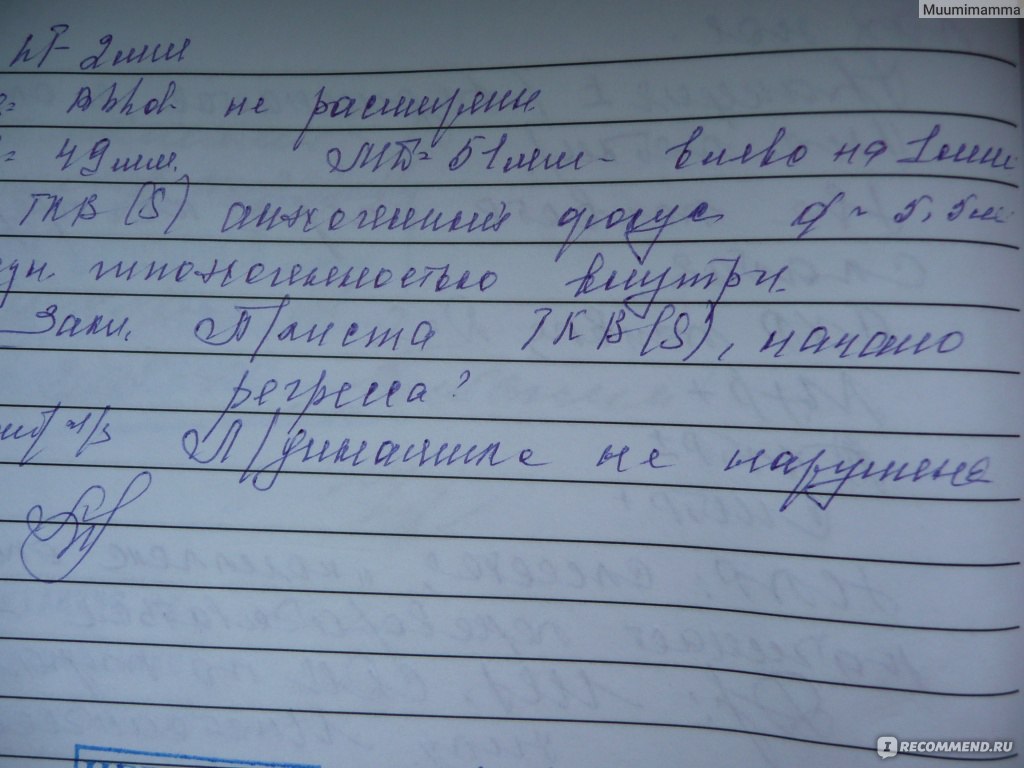 Muumimamma
2 мм
не расширены
= 49 мм. М-Э = 51 мм - влево на 1 мм
ТКВ (S) анэхогенный фокус d ~ 5,5 м
гипоэхогенностью внутри.
Закл. П/киста ТКВ (S), начало
регресса?
Л/динамика не нарушена
IRECOMMEND.RU